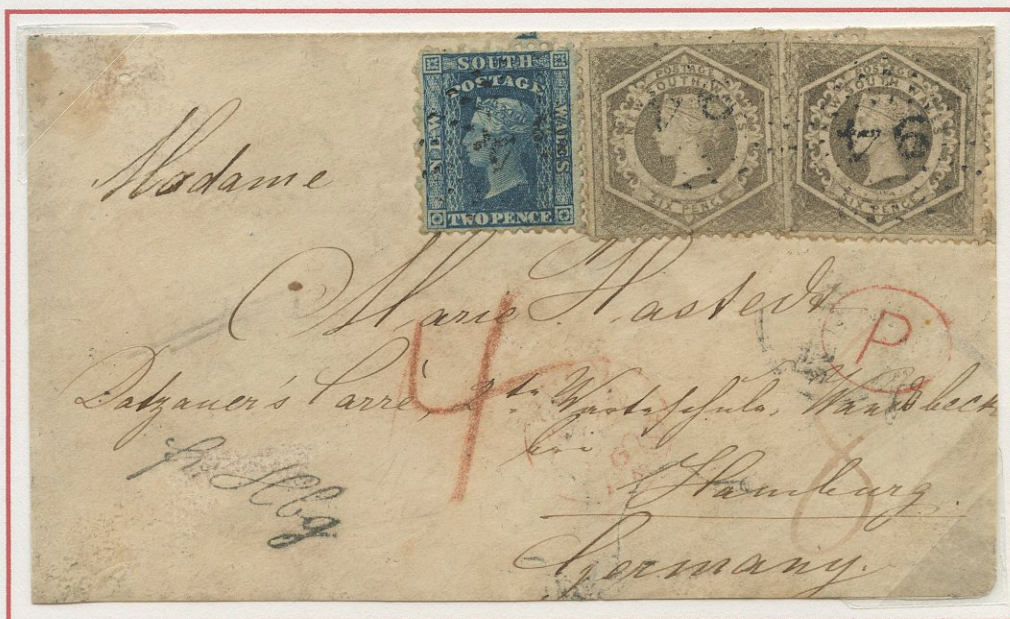 SOUTH
POSTAGE
NEW
WALES
TWO PENCE
POSTAGE
NEW SOUTH WALES
SIX PENCE
POSTAGE
NEW SOUTH WALES
SIX PENCE
Madame
Marie Hastedt
P
4
Datzauer's Carré, 2te Warteschule, Wandsbeck
bei
fr. Hbg
8
Hamburg.
Germany.